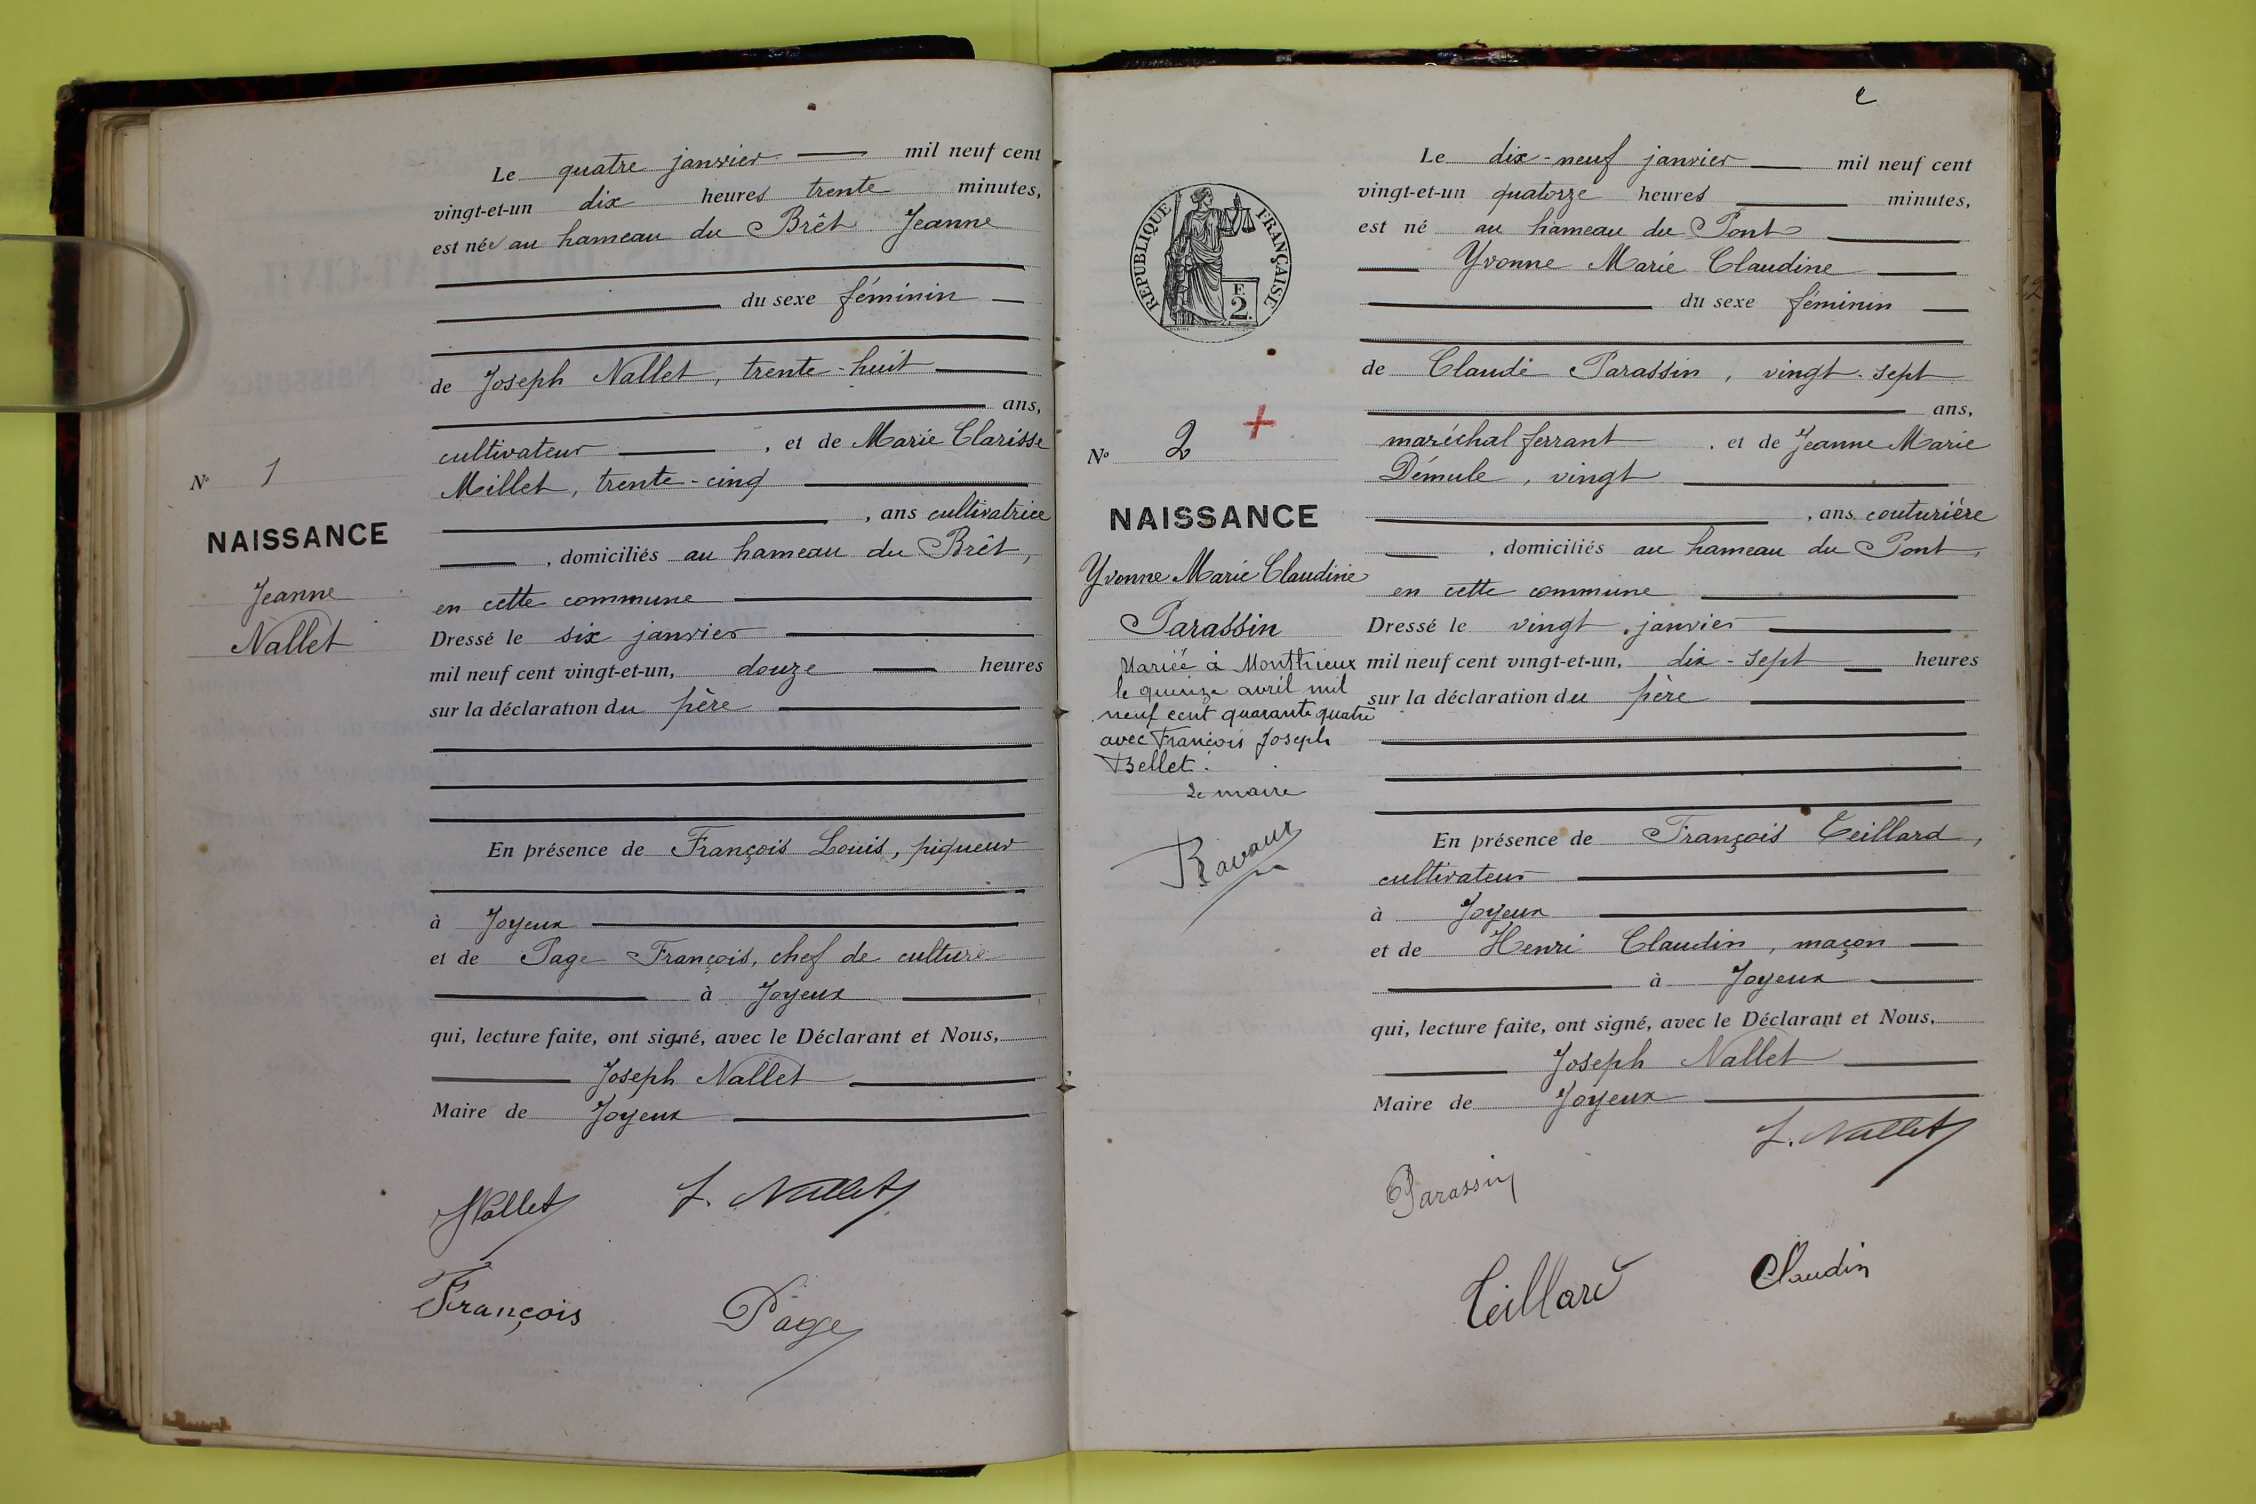 Le quatre janvier mil neuf cent
vingt-et-un dix heures trente minutes,
est née au hameau du Brêt Jeanne
du sexe féminin
de Joseph Nallet, trente-huit
ans,
cultivateur , et de Marie Clarisse
Millet, trente-cinq
, ans cultivatrice
, domiciliés au hameau du Brêt,
en cette commune
Dressé le six janvier
mil neuf cent vingt-et-un, douze heures
sur la déclaration du père
En présence de François Louis, piqueur
à Joyeux
et de Page François, chef de culture
à Joyeux
qui, lecture faite, ont signé, avec le Déclarant et Nous,
Joseph Nallet
Maire de Joyeux
Nallet J. Nallet
François Page
N° 1
NAISSANCE
Jeanne
Nallet
2
RÉPUBLIQUE FRANÇAISE
F.
2.
N° 2 +
NAISSANCE
Yvonne Marie Claudine
Parassin
Mariée à Monthieux
le quinze avril mil
neuf cent quarante quatre
avec François Joseph
Bellet.
Le maire
Ravaux
Le dix-neuf janvier mil neuf cent
vingt-et-un quatorze heures minutes,
est né au hameau du Pont
Yvonne Marie Claudine
du sexe féminin
de Claude Parassin, vingt-sept
ans,
maréchal ferrant , et de Jeanne Marie
Démule, vingt
, ans couturière
, domiciliés au hameau du Pont,
en cette commune
Dressé le vingt janvier
mil neuf cent vingt-et-un, dix-sept heures
sur la déclaration du père
En présence de François Teillard,
cultivateur
à Joyeux
et de Henri Claudin, maçon
à Joyeux
qui, lecture faite, ont signé, avec le Déclarant et Nous,
Joseph Nallet
Maire de Joyeux
J. Nallet
Parassin
Teillard Claudin